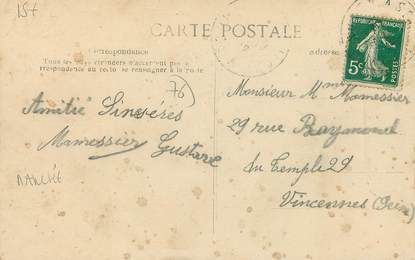 157
CARTE POSTALE
Correspondance
Tous les pays étrangers n'acceptent pas la
correspondance au recto se renseigner à la poste
adresse
REPUBLIQUE FRANÇAISE
5c
POSTES
76
Amitié Sincéres
Mamessier Gustave
MANCHE
Monsieur Mme Mamessier
29 rue Raymond
du Temple 29
Vincennes (Seine)